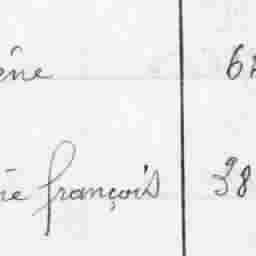 ène 62
rie françois 38